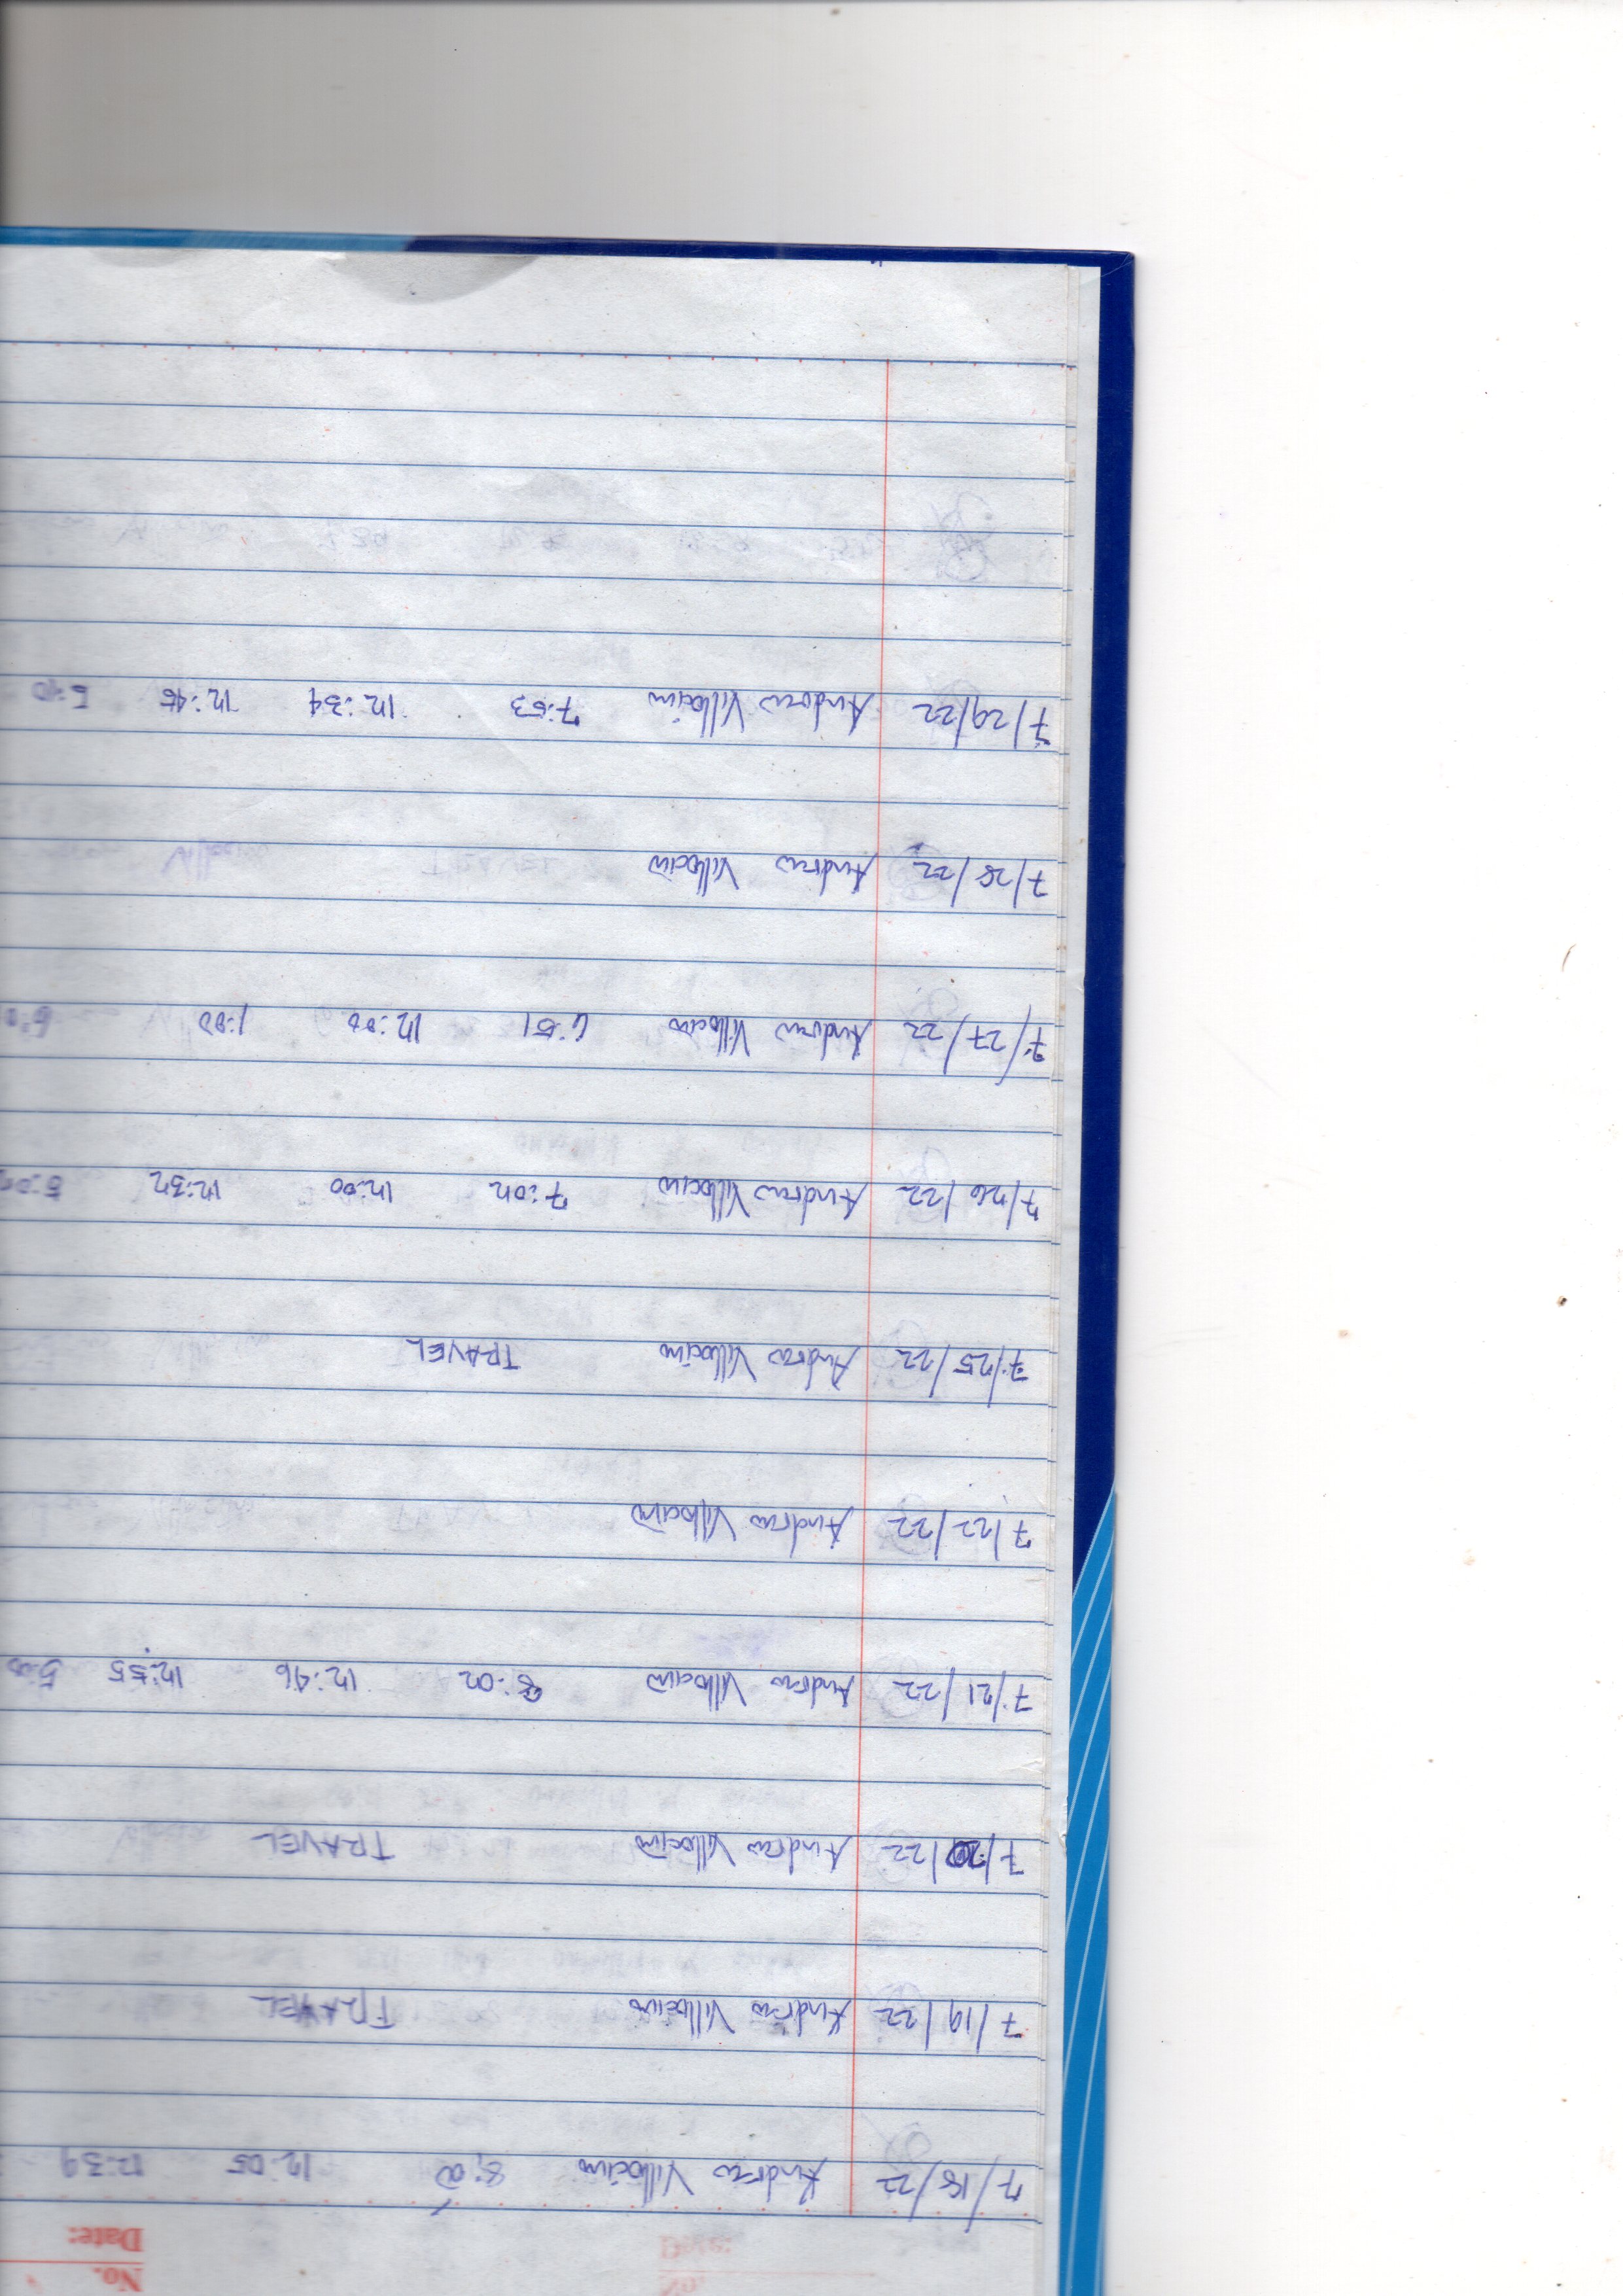 No.
Date:
7/18/22 Andrew Villocino 8:00 12:05 12:39
7/19/22 Andrew Villocino TRAVEL
7/20/22 Andrew Villocino TRAVEL
7/21/22 Andrew Villocino 8:02 12:46 12:55 5:00
7/22/22 Andrew Villocino
7/25/22 Andrew Villocino TRAVEL
7/26/22 Andrew Villocino 7:02 12:00 12:32
7/27/22 Andrew Villocino 6:51 12:00 1:00
7/28/22 Andrew Villocino
7/29/22 Andrew Villocino 7:53 12:34 12:45 5:10